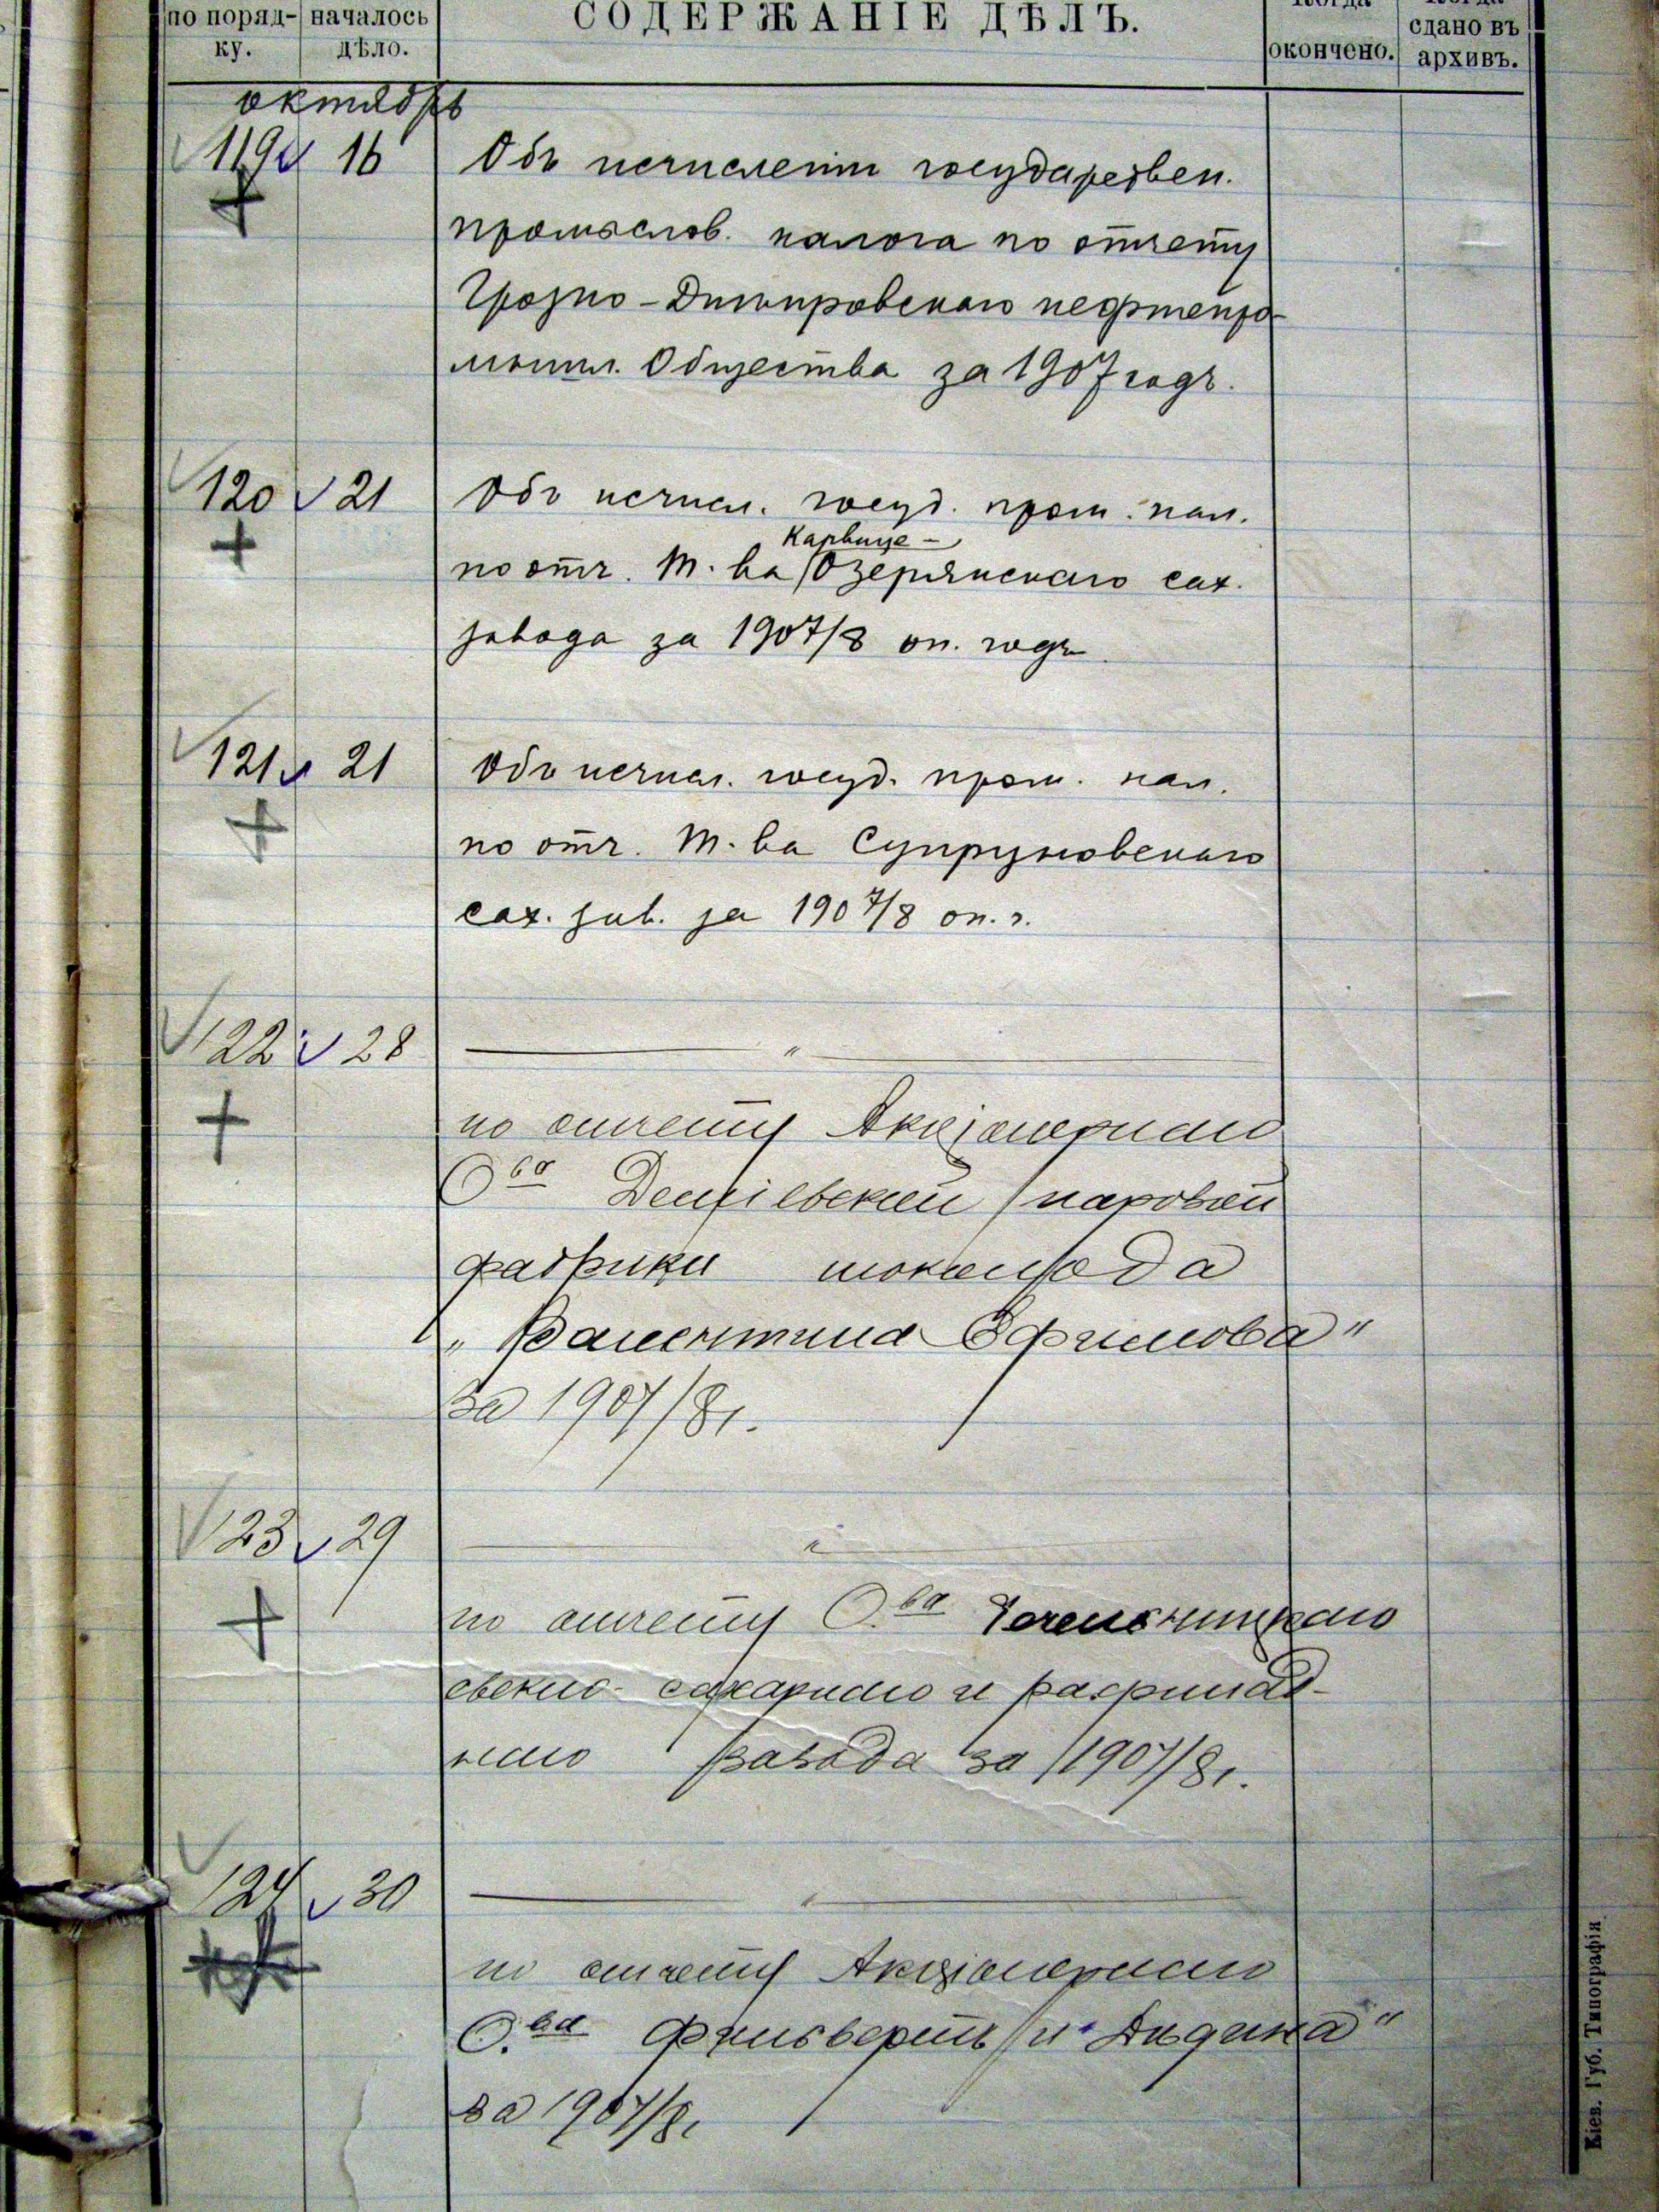 по поряд-
ку.
началось
дѣло.
СОДЕРЖАНІЕ ДѢЛЪ.
окончено.
сдано въ
архивъ.
октябрь
119 16 Объ исчислении государствен.
промыслов. налога по отчету
Грозно-Днѣпровскаго нефтепро-
мышл. Общества за 1907 годъ.
120 21 Объ исчисл. госуд. пром. нал.
Карвице-
по отч. Т. ва Озерянскаго сах.
завода за 1907/8 оп. годъ
121 21 Объ исчисл. госуд. пром. нал.
по отч. Т. ва Супруновскаго
сах. зав. за 1907/8 оп. г.
122 28 — " —
по отчету Акціонернаго
О ва паровой
фабрики шоколада
„Валентина Ефимова"
за 1907/8 г.
123 29 — " —
по отчету О. ва
свекло-сахарнаго и рафинад-
наго завода за 1907/8 г.
124 30 — " —
по отчету Акціонернаго
О. ва Фильвертъ и Дѣдина"
за 1907/8 г.
Кіев. Губ. Типографія